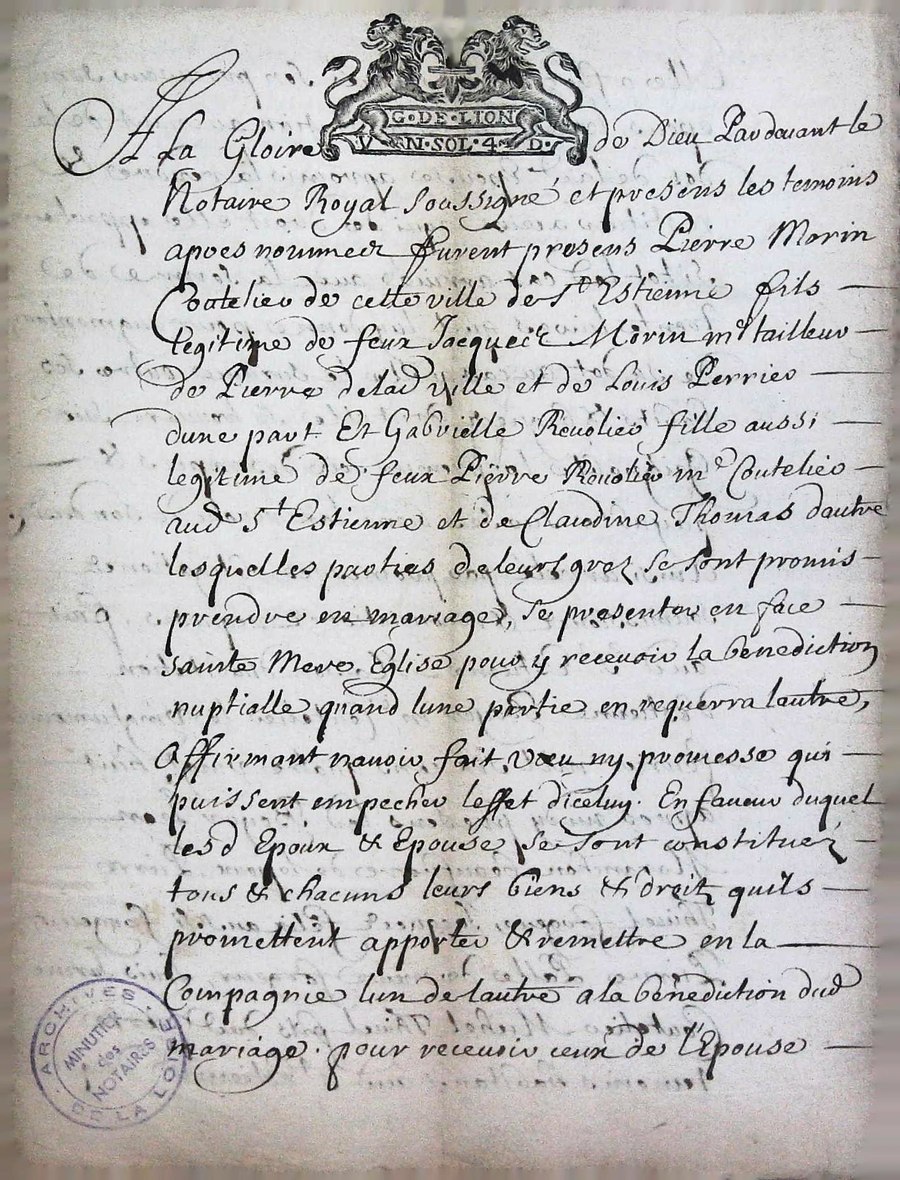 G·DE·LION
VN·SOL·4·D·
A La Gloire de Dieu Pardevant le
Notaire Royal soussigné et presens les temoins
apres nommez furent presens Pierre Morin
Coutelier de cette ville de St Estienne fils
legitime de feux Jacques Morin me tailleur
de Pierre de lad ville et de Louis Perrier
dune part Et Gabrielle Reuolier fille aussi
legitime de feux Pierre Reuolier me Coutelier
aud St Estienne et de Claudine Thomas dautre
lesquelles parties de leurs grez se sont promis
prendre en mariage, se presenter en face
sainte Mere Eglise pour y receuoir la benediction
nuptialle quand lune partie en requerra lautre,
Affirmant nauoir fait vœu ny promesse qui
puissent empecher leffet diceluy. En faueur duquel
lesd Epoux & Epouse se sont constituez
tous & chacuns leurs biens & droitz quils
promettent apporter & remettre en la
Compagnie lun de lautre a la benediction dud
mariage. pour receuoir ceux de l'Epouse
ARCHIVES
DE LA LOIRE
MINUTIER
des
NOTAIRES